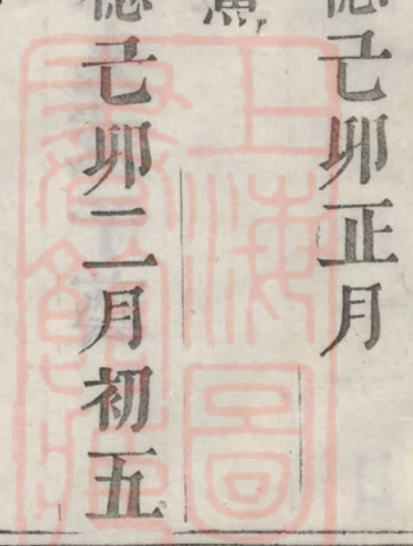 德己卯正月
德己卯二月初五
上海圖書館藏